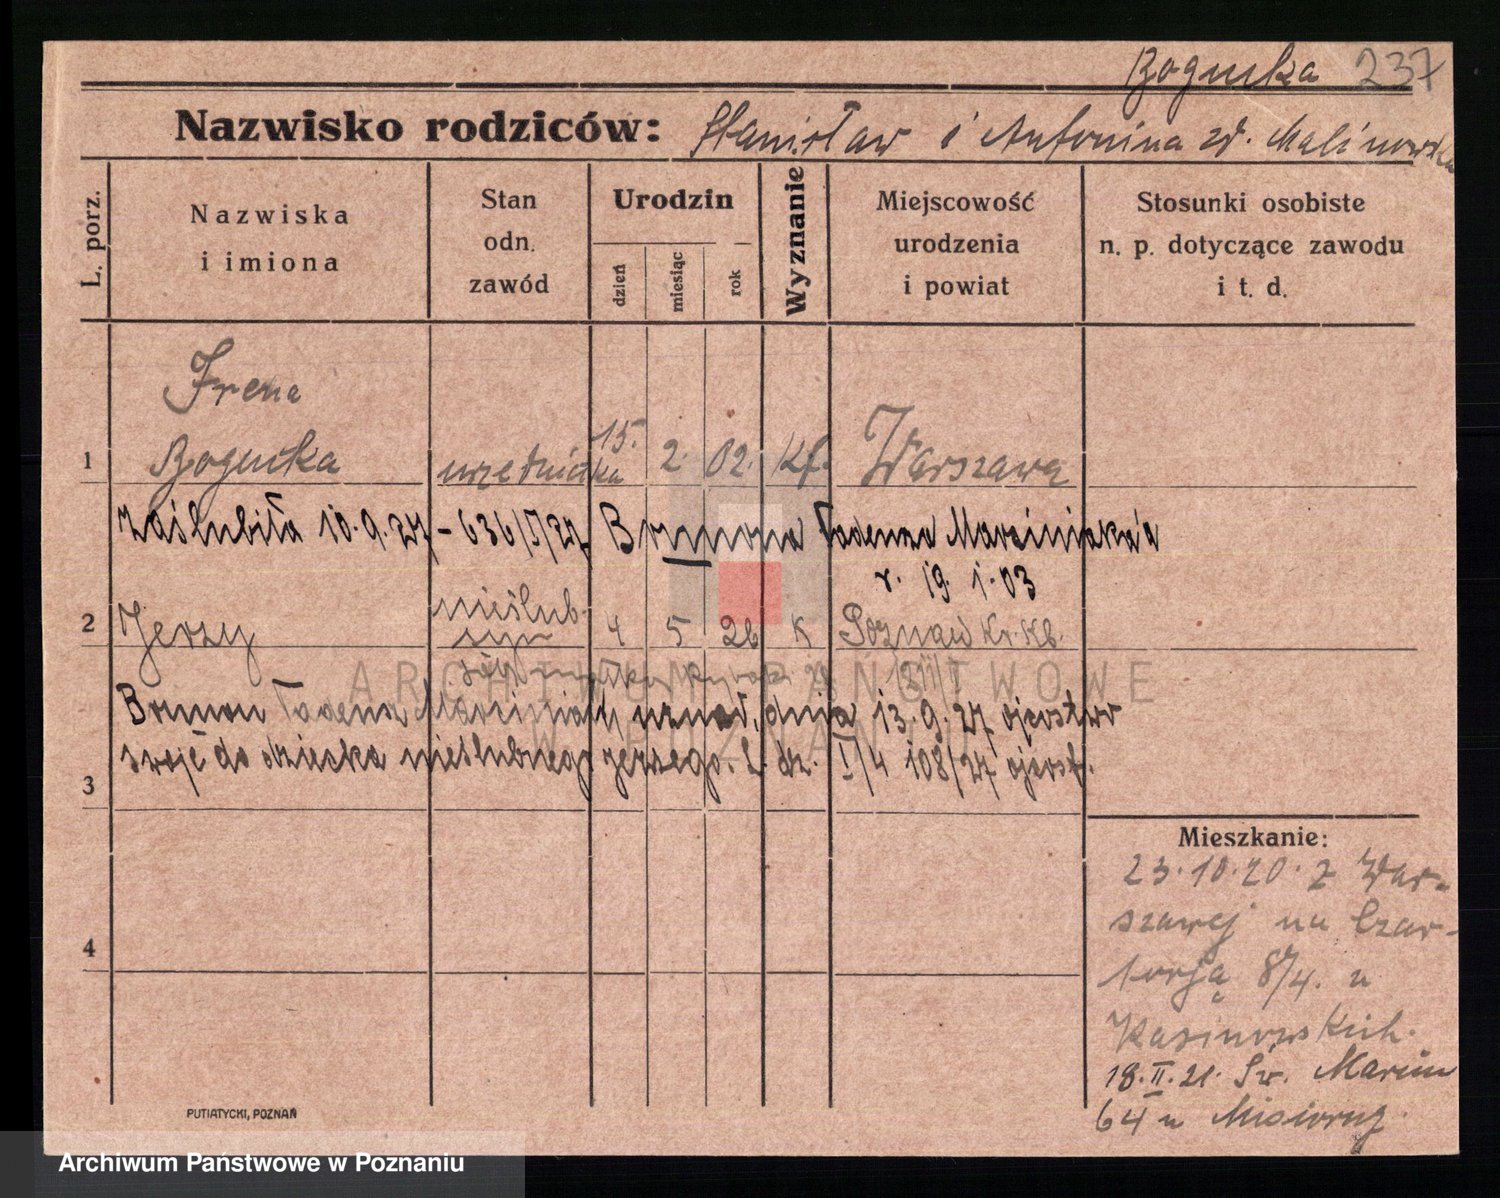 Bogucka 237
Nazwisko rodziców: Stanisław i Antonina zd. Malinowska
L. porz.
Nazwiska
i imiona
Stan
odn.
zawód
Urodzin
dzień
miesiąc
rok
Wyznanie
Miejscowość
urodzenia
i powiat
Stosunki osobiste
n. p. dotyczące zawodu
i t. d.
Irena
1 Bogucka urzędniczka 15. 2. 02. Kf. Warszawa
Zaślubiła 10.9.27 - 636/I/27 Brunona Tadeusza Marciniaka'a
r. 19.1.03
nieślub.
2 Jerzy syn 4 5 26 K Poznań Kr. Kb.
Brunon Tadeusz Marciniak uznał dnia 13.9.27 ojcostwo
3 swoje do dziecka nieślubnego Jerzego. L. dz. I/4 108/27 ojcost.
4
Mieszkanie:
23.10.20. z War-
szawy na Czar-
torją 8/4. u
Kasinowskich.
18.II.21. Św. Marcin
64 u
PUTIATYCKI, POZNAŃ
ARCHIWUM PAŃSTWOWE
W POZNANIU
Archiwum Państwowe w Poznaniu